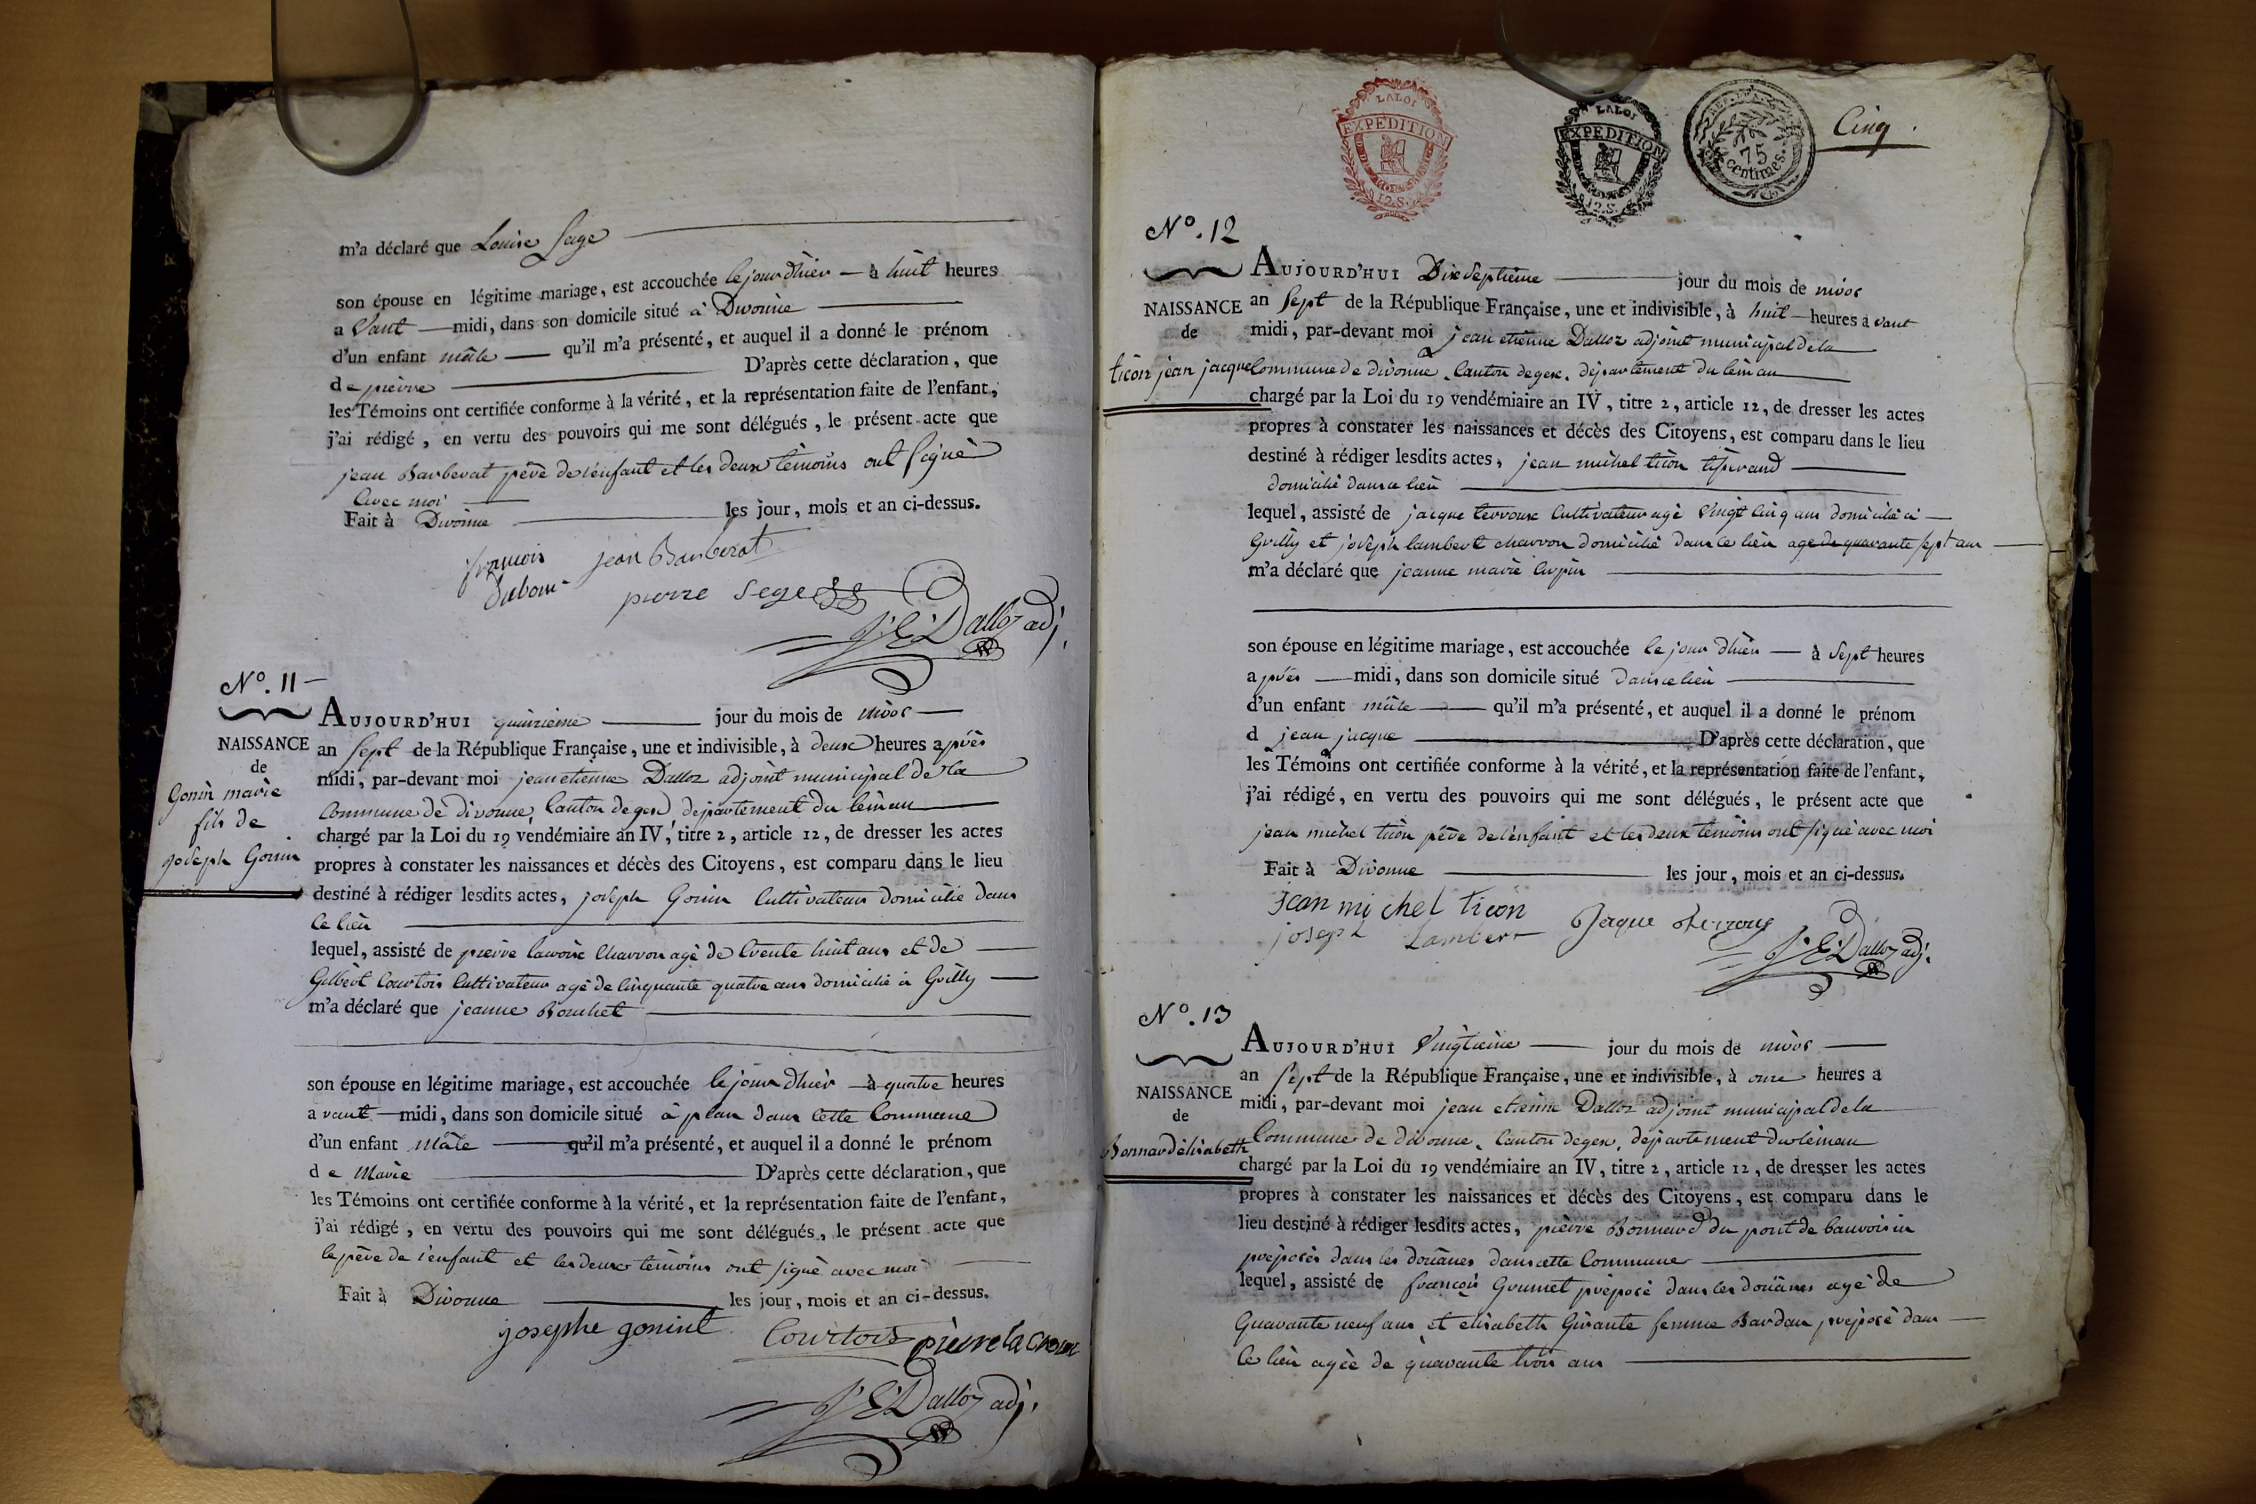 m'a déclaré que Louise Sage
son épouse en légitime mariage, est accouchée le jour d'hièr à huit heures
a vant midi, dans son domicile situé à Divonne
d'un enfant mâle qu'il m'a présenté, et auquel il a donné le prénom
de pierre D'après cette déclaration, que
les Témoins ont certifiée conforme à la vérité, et la représentation faite de l'enfant,
j'ai rédigé, en vertu des pouvoirs qui me sont délégués, le présent acte que
jean Barberat père de l'enfant et les deux témoins ont signé
avec moi
Fait à Divonne les jour, mois et an ci-dessus.
françois jean Barberat
dubout pierre Sege
J. E. Dalloz adj.
N°. 11
AUJOURD'HUI quinzieme jour du mois de nivos
NAISSANCE an sept de la République Française, une et indivisible, à deux heures après
de
midi, par-devant moi jean etienne Dalloz adjoint municipal de la
Gonin marie
commune de divonne, Canton de gex département du léman
fils de
chargé par la Loi du 19 vendémiaire an IV, titre 2, article 12, de dresser les actes
joseph Gonin
propres à constater les naissances et décès des Citoyens, est comparu dans le lieu
destiné à rédiger lesdits actes, joseph Gonin Cultivateur domicilié dans
ce lieu
lequel, assisté de pierre lacroix Charron agé de trente huit ans et de
Gilbert Courtois Cultivateur agé de Cinquante quatre ans domicilié à Grilly
m'a déclaré que jeanne Bouchet
son épouse en légitime mariage, est accouchée le jour d'hièr à quatre heures
a vant midi, dans son domicile situé à plan dans Cette Commune
d'un enfant mâle qu'il m'a présenté, et auquel il a donné le prénom
de Marie D'après cette déclaration, que
les Témoins ont certifiée conforme à la vérité, et la représentation faite de l'enfant,
j'ai rédigé, en vertu des pouvoirs qui me sont délégués, le présent acte que
le père de l'enfant et les deux témoins ont signé avec moi
Fait à Divonne les jour, mois et an ci-dessus.
josephe gonint Courtois pierre la croix
J. E. Dalloz adj.
LA LOI
EXPEDITION
12. S.
LA LOI
EXPEDITION
12. S.
REP. FRA.
75
centimes.
Cinq.
N°. 12
AUJOURD'HUI Dix Septième jour du mois de nivos
NAISSANCE an Sept de la République Française, une et indivisible, à huit heures a vant
de
midi, par-devant moi jean etienne Dalloz adjoint municipal de la
ticon jean jacque
Commune de divonne. Canton de gex. département du léman
chargé par la Loi du 19 vendémiaire an IV, titre 2, article 12, de dresser les actes
propres à constater les naissances et décès des Citoyens, est comparu dans le lieu
destiné à rédiger lesdits actes, jean michel ticon tisserand
domicilié dans ce lieu
lequel, assisté de jacque terroux Cultivateur agé Vingt Cinq ans domicilié à
Grilly et joseph lambert charron domicilié dans ce lieu agé de quarante sept ans
m'a déclaré que jeanne marie
son épouse en légitime mariage, est accouchée le jour d'hièr à Sept heures
après midi, dans son domicile situé dans ce lieu
d'un enfant mâle qu'il m'a présenté, et auquel il a donné le prénom
d jean jacque D'après cette déclaration, que
les Témoins ont certifiée conforme à la vérité, et la représentation faite de l'enfant,
j'ai rédigé, en vertu des pouvoirs qui me sont délégués, le présent acte que
jean michel ticon père de l'enfant et les deux témoins ont signé avec moi
Fait à Divonne les jour, mois et an ci-dessus.
jean mi chel ticon Jaque terroux
joseph Lambert
J. E. Dalloz adj.
N°. 13
AUJOURD'HUI Vingtième jour du mois de nivos
NAISSANCE an sept de la République Française, une et indivisible, à onze heures a
de
midi, par-devant moi jean etienne Dalloz adjoint municipal de la
Bonnard élisabeth
Commune de divonne, Canton de gex, département du léman
chargé par la Loi du 19 vendémiaire an IV, titre 2, article 12, de dresser les actes
propres à constater les naissances et décès des Citoyens, est comparu dans le
lieu destiné à rédiger lesdits actes, pierre Bonnard du pont de bauvoisin
préposés dans les douânes dans cette Commune
lequel, assisté de françois Gounet préposé dans les douânes agé de
Quarante neuf ans et elisabeth Girante femme Bardan préposé dans
Ce lieu agée de quarante trois ans